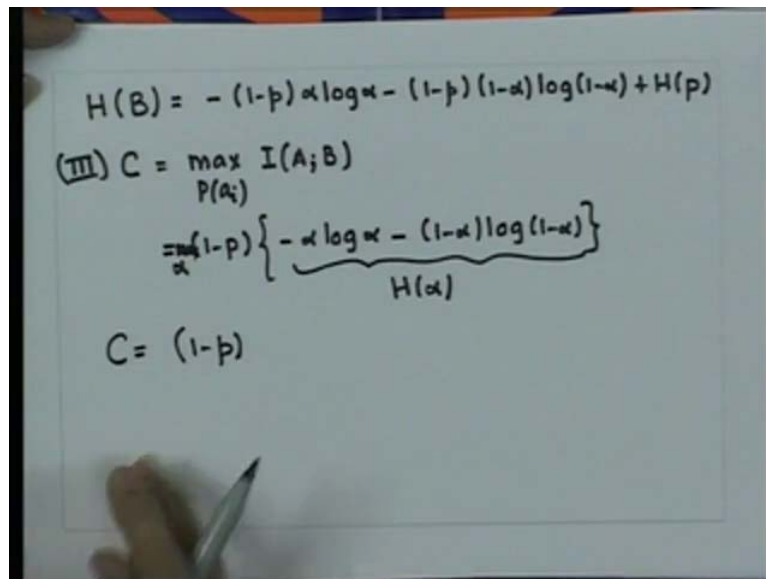 H(B) = - (1-p) α log α - (1-p) (1-α) log (1-α) + H(p)
(III) C = max I(A;B)
P(ai)
= max (1-p) { - α log α - (1-α) log (1-α) }
α
H(α)
C = (1-p)